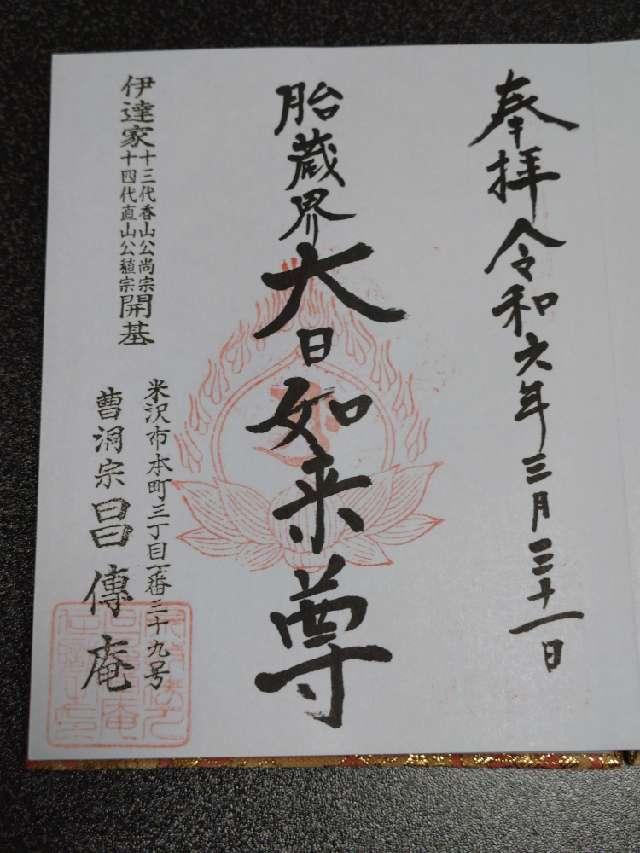 奉拝 令和六年三月三十一日
胎蔵界大日如来尊
伊達家
十三代香山公尚宗
十四代直山公稙宗
開基
米沢市本町三丁目一番三十九号
曹洞宗 昌傳庵